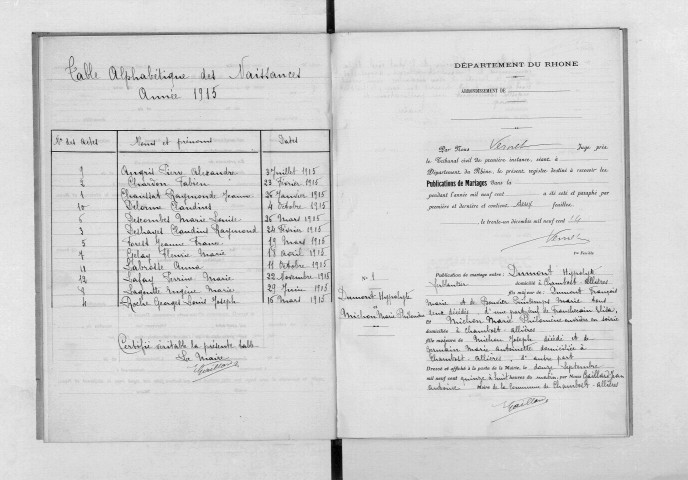 Table Alphabétique des Naissances
Année 1915
Nos des actes Noms et prénoms Dates
9 Pierre Alexandre 3 Juillet 1915
2 Charvon Fabien 23 Février 1915
1 Chavassat Raymonde Jeanne 26 Janvier 1915
10 Delorme Claudius 4 Octobre 1915
6 Descombes Marie Louise 26 Mars 1915
3 Deshayes Claudius Raymond 24 Février 1915
5 Forest Jeanne 19 Mars 1915
7 Fleurie Marie 18 Avril 1915
11 Labrosse Anna 11 Octobre 1915
12 Lafay Marie 22 Novembre 1915
8 Eugène Marie 29 Juin 1915
4 Roche Georges Louis Joseph 16 Mars 1915
Certifié véritable la présente table
Le Maire
Gaillard
DÉPARTEMENT DU RHONE
ARRONDISSEMENT DE
Par Nous Vernet Juge près
le Tribunal civil de première instance, séant à
Département du Rhône, le présent registre destiné à recevoir les
Publications de Mariages dans la
pendant l'année mil neuf cent a été coté et paraphé par
première et dernière et contient deux feuilles.
le trente-un décembre mil neuf cent 14
Vernet
N° 1
Dumont Hippolyte
et
Michon Marie Philomène
Publication de mariage entre : Dumont Hippolyte
cultivateur domicilié à Chambost-Allières
fils majeur de Dumont François
Marie et de Printemps Marie tous
deux décédés d'une part,
et Michon Marie Philomène ouvrière en soierie
domiciliée à Chambost-Allières
fille majeure de Michon Joseph décédé et de
Germain Marie Antoinette domiciliée à
Chambost-Allières, d'autre part
Dressé et affiché à la porte de la Mairie, le douze Septembre
mil neuf cent quinze à huit heures du matin, par Nous Gaillard Jean
Antoine Maire de la Commune de Chambost-Allières
Gaillard